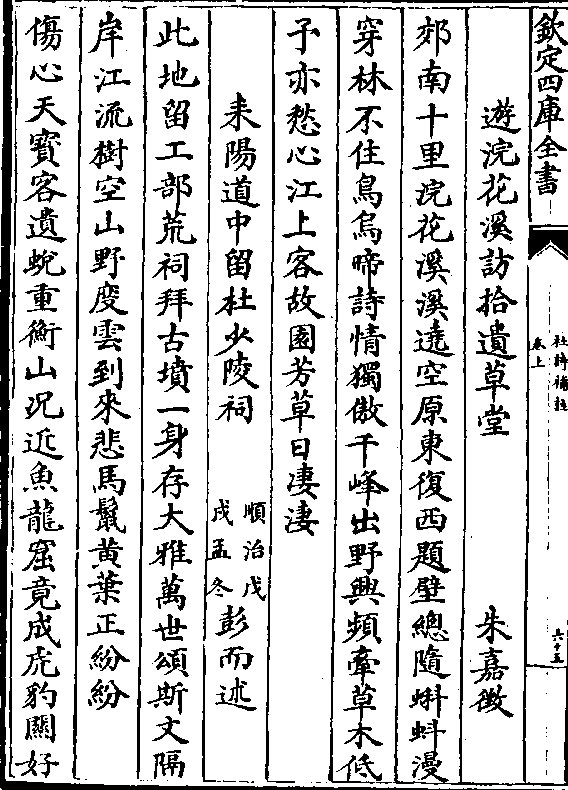 欽定四庫全書
杜詩補註
卷上
六十五
遊浣花溪訪拾遺草堂　朱嘉徴
郊南十里浣花溪溪遶空原東復西題壁總隨蝌蚪漫
穿林不住鳥烏啼詩情獨傲千峰出野興頻牽草木低
予亦愁心江上客故園芳草日凄淒
耒陽道中留杜少陵祠　順治戊戌孟冬　彭而述
此地留工部荒祠拜古墳一身存大雅萬世頌斯文隔
岸江流樹空山野度雲到來悲馬鬛黄葉正紛紛
傷心天寳客遺蛻重衡山况近魚龍窟竟成虎豹關好